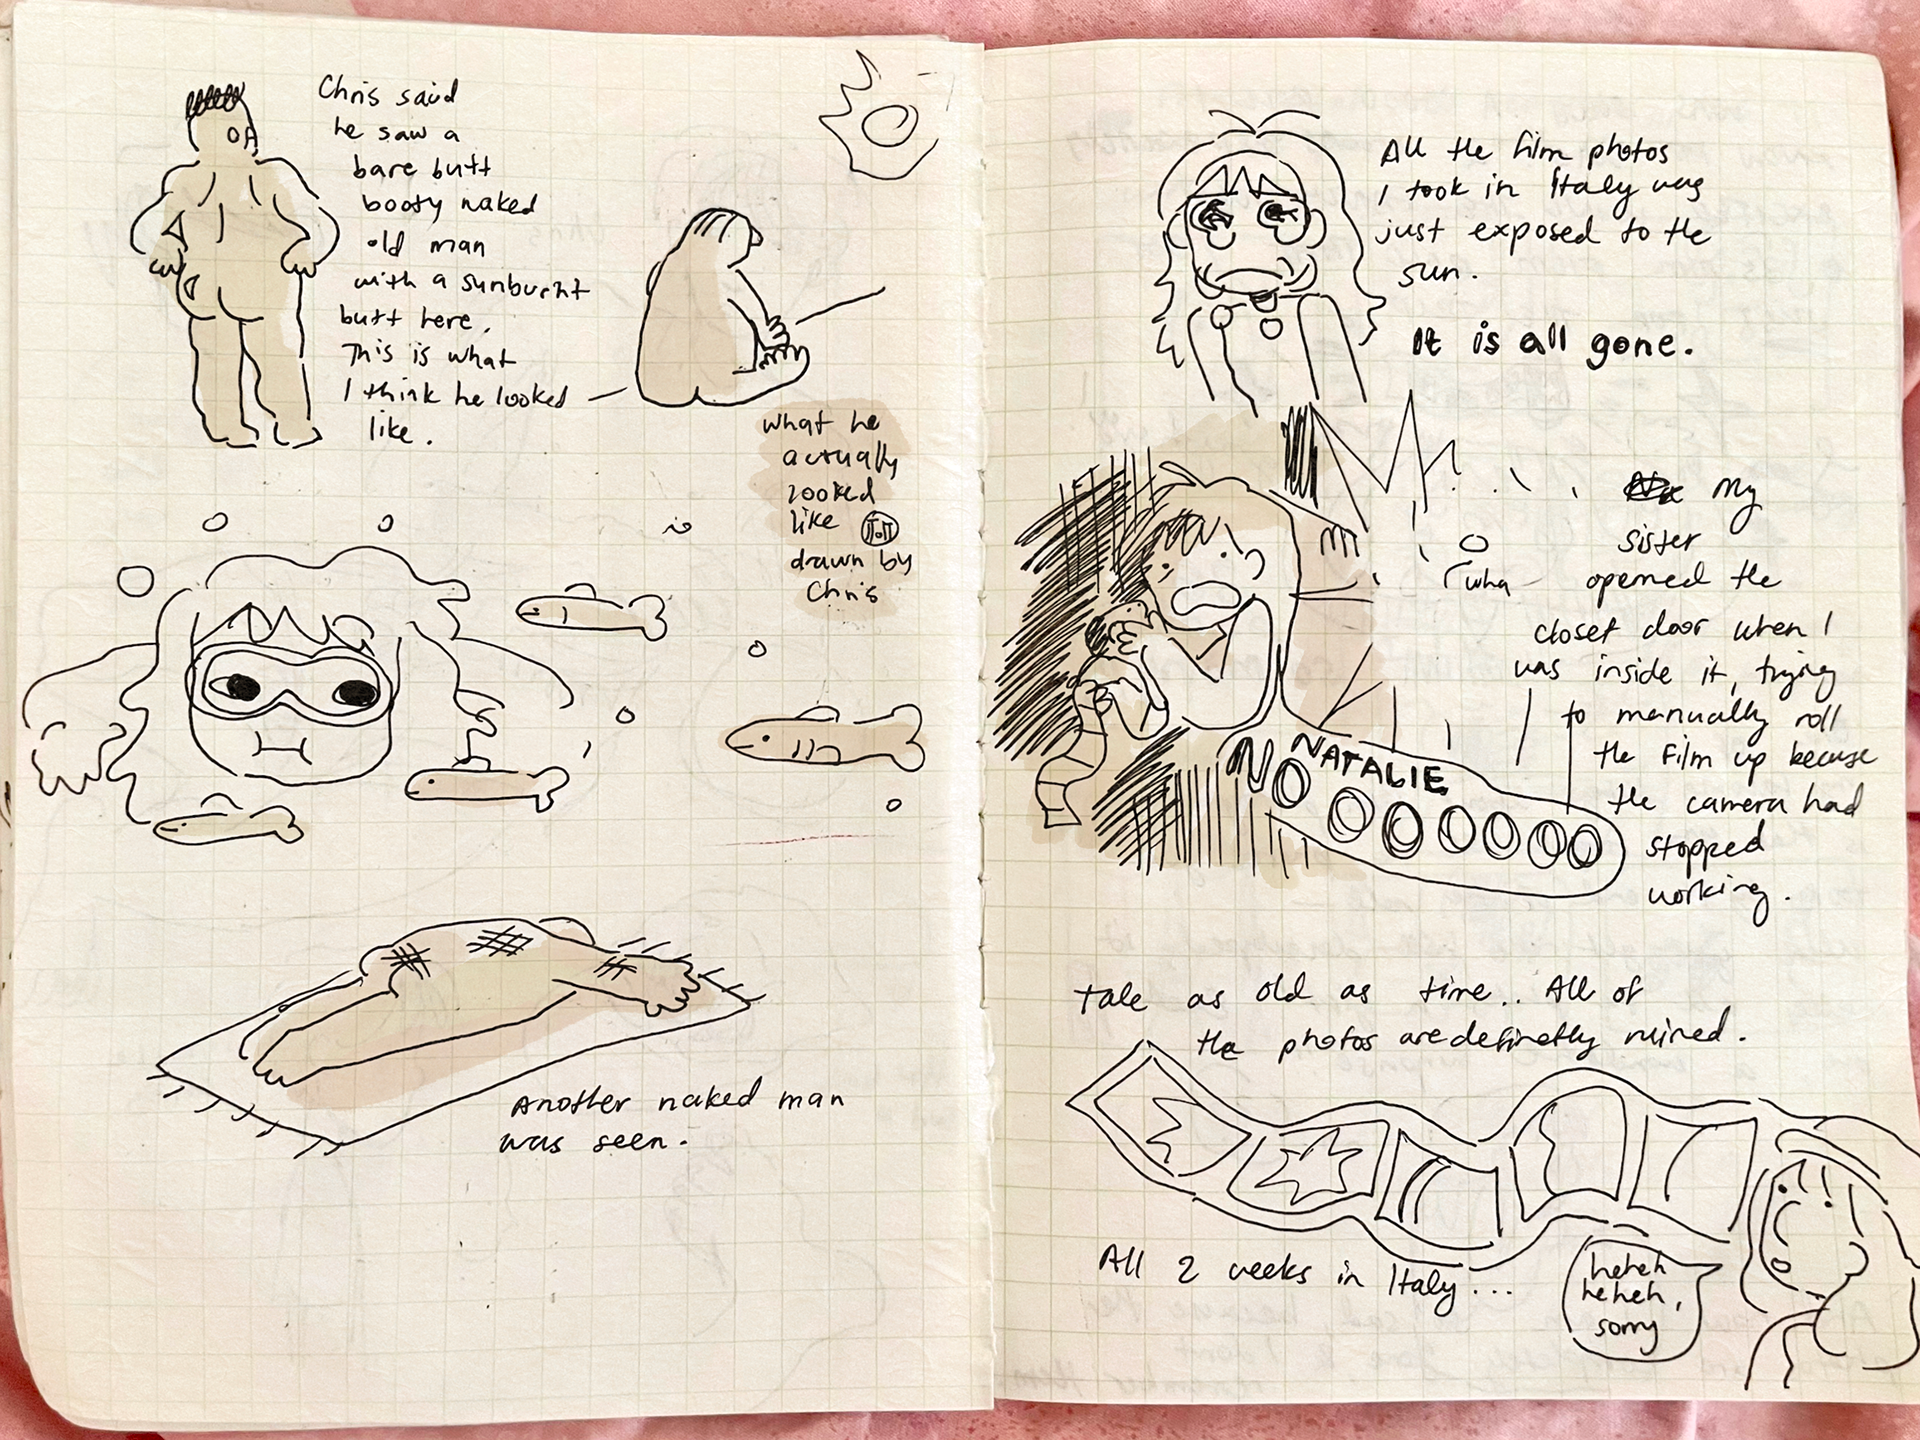 Chris said
he saw a
bare butt
booty naked
old man
with a sunburnt
butt here.
This is what
I think he looked
like.
what he
actually
looked
like
drawn by
Chris
Another naked man
was seen.
All the film photos
I took in Italy was
just exposed to the
sun.
It is all gone.
My
sister
opened the
closet door when I
was inside it, trying
to manually roll
the film up because
the camera had
stopped
working.
wha
NATALIE
NOOOOOOO
Tale as old as time.. All of
the photos are definetly ruined.
All 2 weeks in Italy...
heheh
heheh,
sorry